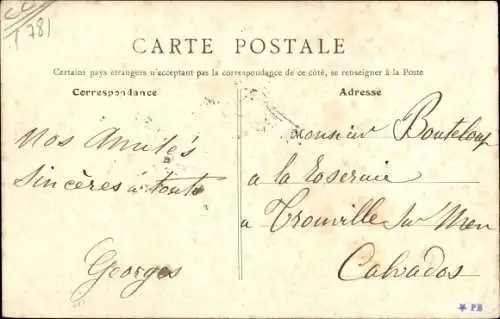 (781
CARTE POSTALE
Certains pays étrangers n'acceptant pas la correspondance de ce côté, se renseigner à la Poste
Correspondance
Nos Amitiés
Sincères à toute
Georges
Adresse
Monsieur Bouteloup
a la Roseraie
a Trouville Sur Mer
Calvados
PB